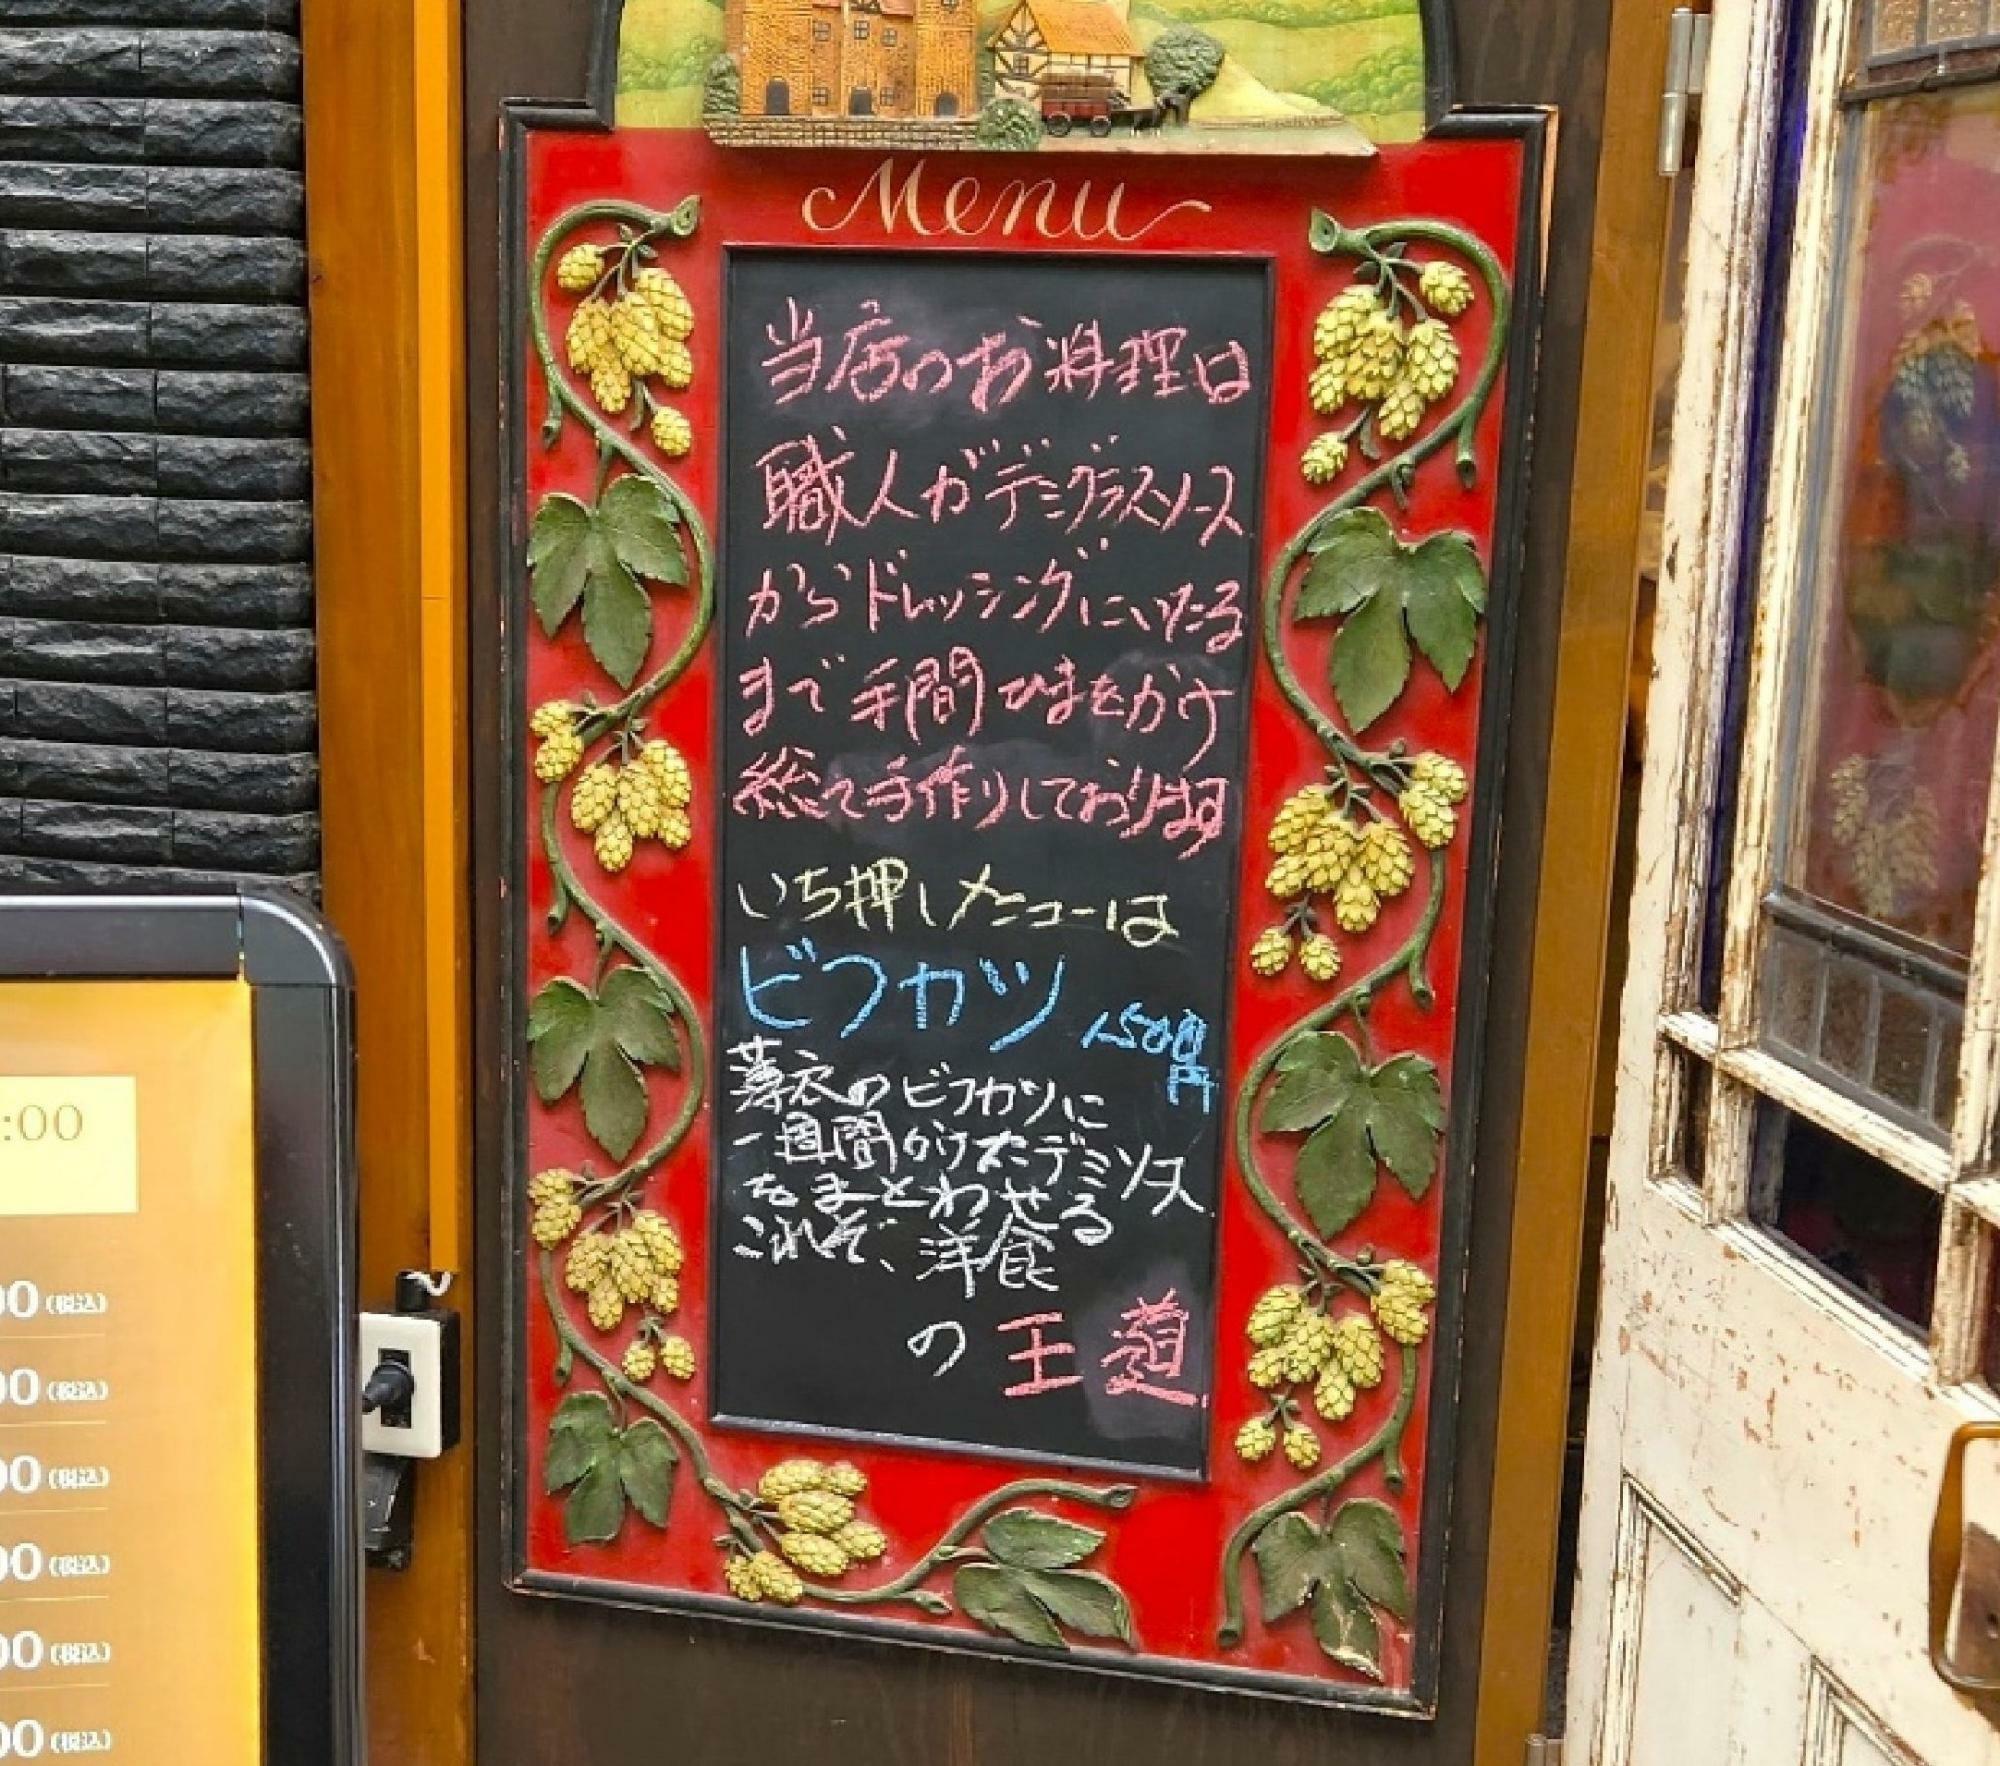 Menu
当店のお料理は
職人がデミグラスソース
からドレッシングにいたる
まで手間ひまをかけ
総て手作りしております
いち押しメニューは
ビフカツ 1500円
薄衣のビフカツに
一週間かけたデミソース
をまとわせる
これぞ、洋食
の王道
:00
00(税込)
00(税込)
00(税込)
00(税込)
00(税込)
00(税込)